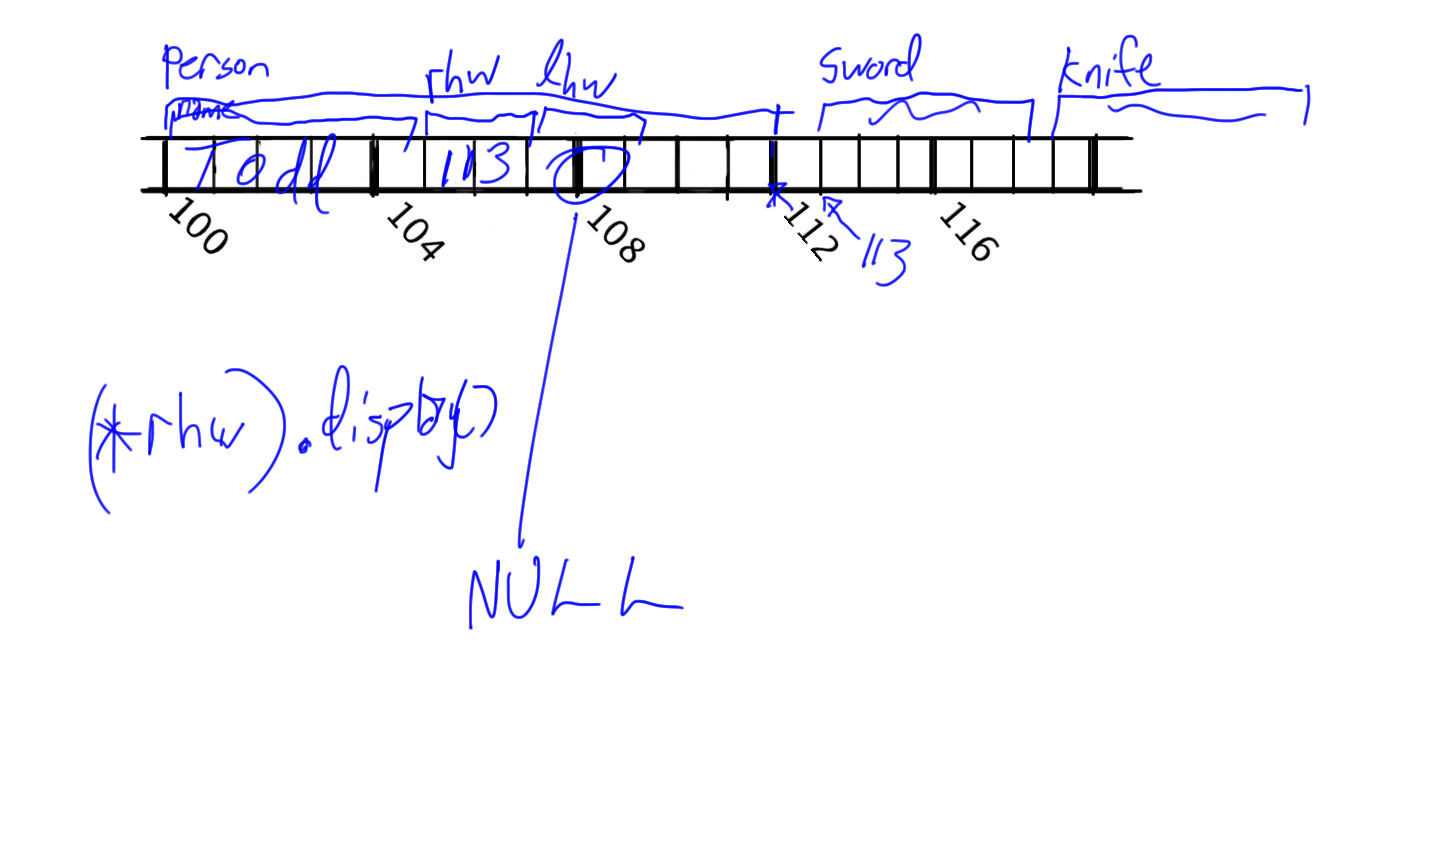 person rhw lhw sword knife
name
Todd 113
100 104 108 112 116
113
(*rhw).display()
NULL